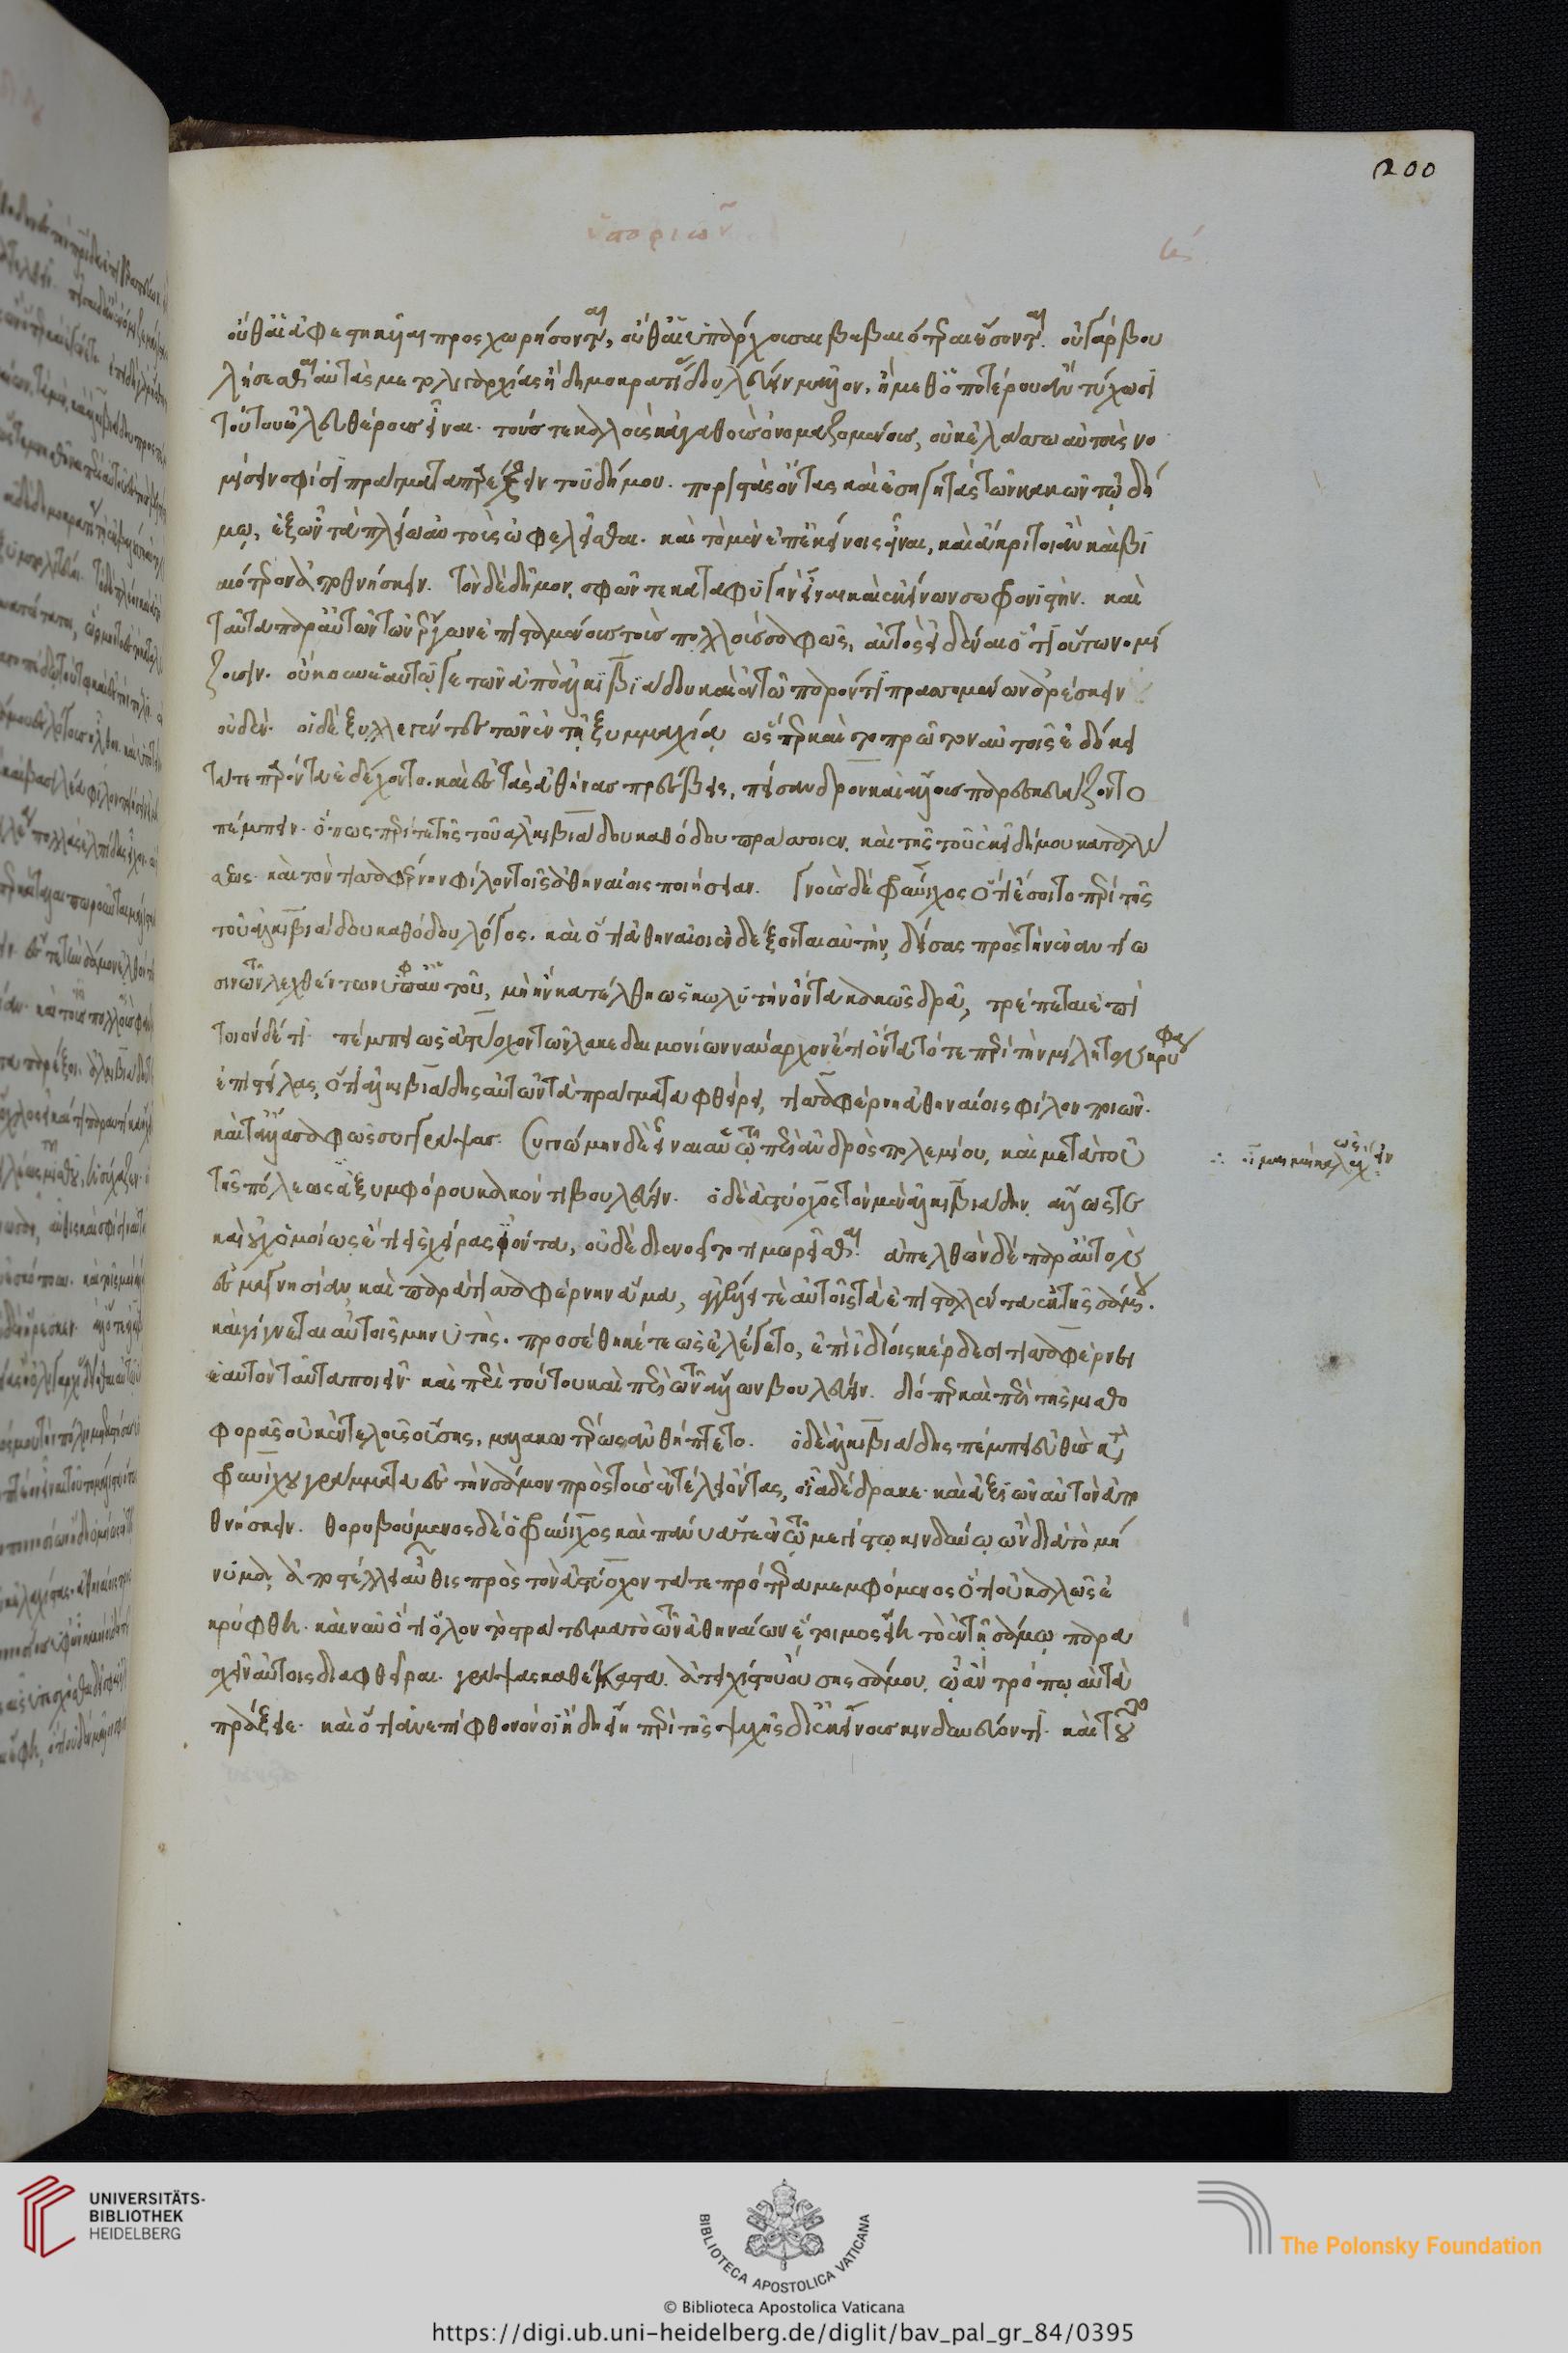 ὑποριῶν
200
οὔθ' αἱ ἀφεστηκυῖαι προσχωρήσονται, οὔθ' αἱ ὑπάρχουσαι βεβαιότεραι ἔσονται. οὐ γὰρ βου
λήσεσθαι αὐτὰς μετ' ὀλιγαρχίας ἢ δημοκρατίας δουλεύειν μᾶλλον, ἢ μεθ' ὁποτέρου ἂν τύχωσι
τούτου ἐλευθέρους εἶναι. τούς τε καλοὺς κἀγαθοὺς ὀνομαζομένους, οὐκ ἐλάσσω αὐτοὺς νο
μίσειν σφίσι πράγματα παρέξειν τοῦ δήμου. ποριστὰς ὄντας καὶ ἐσηγητὰς τῶν κακῶν τῷ δή
μῳ, ἐξ ὧν τὰ πλείω αὐτοὺς ὠφελεῖσθαι. καὶ τὸ μὲν ἐπ' ἐκείνοις εἶναι, καὶ ἄκριτοι ἂν καὶ βι
αιότερον ἀποθνήσκειν. τὸν δὲ δῆμον, σφῶν τε καταφυγὴν εἶναι καὶ ἐκείνων σωφρονιστήν. καὶ
ταῦτα παρ' αὐτῶν τῶν ἔργων ἐπισταμένους τοὺς πολλοὺς σαφῶς, αὐτὸς εἰδέναι ὅτι οὕτω νομί
ζουσιν. οὔκουν ἑαυτῷ γε τῶν ἀπὸ ἀλκιβιάδου καὶ ἐν τῷ παρόντι πρασσομένων ἀρέσκειν
οὐδέν. οἱ δὲ ξυλλεγέντες τῶν ἐν τῇ ξυμμαχίᾳ ὥσπερ καὶ τὸ πρῶτον αὐτοῖς ἐδόκει
τά τε παρόντα ἐδέχοντο. καὶ ἐς τὰς ἀθήνας πρέσβεις, πείσανδρον καὶ ἄλλους παρεσκευάζοντο
πέμπειν. ὅπως περί τε τῆς τοῦ ἀλκιβιάδου καθόδου πράσσοιεν, καὶ τῆς τοῦ ἐκεῖ δήμου καταλύ
σεως. καὶ τὸν τισσαφέρνην φίλον τοῖς ἀθηναίοις ποιήσειαν. γνοὺς δὲ φρύνιχος ὅτι ἔσοιτο περὶ τῆς
τοῦ ἀλκιβιάδου καθόδου λόγος. καὶ ὅτι ἀθηναῖοι ἐνδέξονται αὐτήν, δείσας πρὸς τὴν ἐναντίω
σιν τῶν λεχθέντων ὑφ' αὑτοῦ, μὴ ἢν κατέλθῃ ὡς κωλυτὴν ὄντα κακῶς δρᾷ, τρέπεται ἐπὶ
τοιόνδε τι. πέμπει ὡς ἀστύοχον τῶν λακεδαιμονίων ναύαρχον ἔτι ὄντα τότε περὶ τὴν μίλητον κρύφα
ἐπιστείλας, ὅτι ἀλκιβιάδης αὐτῶν τὰ πράγματα φθείρει, τισσαφέρνην ἀθηναίοις φίλον ποιῶν.
καὶ τἆλλα σαφῶς συγγράψας. ξυγγνώμην δὲ εἶναι αὐτῷ περὶ ἀνδρὸς πολεμίου, καὶ μετὰ τοῦ
τῆς πόλεως ἀξυμφόρου κακόν τι βουλεύειν. ὁ δὲ ἀστύοχος τὸν μὲν ἀλκιβιάδην. ἄλλως τε
καὶ οὐχ ὁμοίως ἔτι ἐς χεῖρας ἰόντα, οὐδὲ διενοεῖτο τιμωρεῖσθαι. ἀπελθὼν δὲ παρ' αὐτὸν
ἐς μαγνησίαν, καὶ παρὰ τισσαφέρνην ἅμα, λέγει τε αὐτοῖς τὰ ἐπισταλέντα ἐκ τῆς σάμου.
καὶ γίγνεται αὐτοῖς μηνυτής. προσέθηκέ τε ὡς ἐλέγετο, ἐπὶ ἰδίοις κέρδεσι τισσαφέρνει
ἑαυτὸν ταῦτα ποιεῖν. καὶ περὶ τούτου καὶ περὶ τῶν ἄλλων βουλεύειν. διόπερ καὶ περὶ τῆς μισθο
φορᾶς οὐκ ἐντελοῦς οὔσης, μαλακωτέρως ἀνθήπτετο. ὁ δὲ ἀλκιβιάδης πέμπει εὐθὺς κατὰ
φρυνίχου γράμματα ἐς τὴν σάμον πρὸς τοὺς ἐν τέλει ὄντας, οἷα δέδρακε. καὶ ἀξιῶν αὐτὸν ἀπο
θνήσκειν. θορυβούμενος δὲ ὁ φρύνιχος καὶ πάνυ ἐν τῷ μεγίστῳ κινδύνῳ ὢν διὰ τὸ μή
νυμα, ἀποστέλλει αὖθις πρὸς τὸν ἀστύοχον τά τε πρότερα μεμφόμενος ὅτι οὐ καλῶς ἐ
κρύφθη. καὶ νῦν ὅτι ὅλον τὸ στράτευμα τὸ τῶν ἀθηναίων ἕτοιμος εἴη τὸ ἐν τῇ σάμῳ παρα
σχεῖν αὐτοῖς διαφθεῖραι. γράψας καθ' ἕκαστα. ἀτειχίστου οὔσης σάμου, ᾧ ἂν τρόπῳ αὐτὰ
πράξειε. καὶ ὅτι ἀνεπίφθονόν οἱ ἤδη εἴη περὶ τῆς ψυχῆς δι' ἐκείνους κινδυνεύοντι. καὶ τοῦτο
UNIVERSITÄTS-
BIBLIOTHEK
HEIDELBERG
BIBLIOTECA APOSTOLICA VATICANA
The Polonsky Foundation
© Biblioteca Apostolica Vaticana
https://digi.ub.uni-heidelberg.de/diglit/bav_pal_gr_84/0395